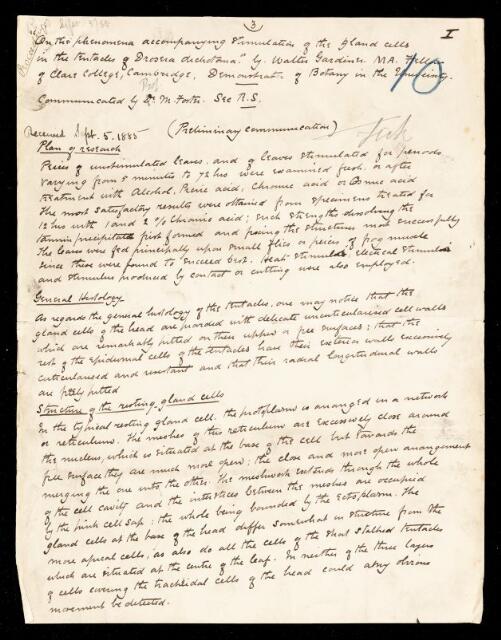 3
I
On the phenomena accompanying stimulation of the gland cells
in the tentacles of Drosera dichotoma" by Walter Gardiner. M.A. Fellow
of Clare College, Cambridge, Demonstrator of Botany in the University.
Prof
Communicated by Dr. M. Foster. Sec R.S.
10
Received Sept. 5. 1885 (Preliminary communication)
Plan of research
Pieces of unstimulated leaves, and of leaves stimulated for periods
varying from 5 minutes to 72 hrs were examined fresh, or after
treatment with Alcohol, Picric acid, Chromic acid or Osmic acid
The most satisfactory results were obtained from specimens treated for
12 hrs with 1 and 2 % Chromic acid; such strengths dissolving the
tannin precipitate first formed and fixing the structures most successfully
The leaves were fed principally upon small flies or pieces of frog muscle
since these were found to succeed best. Heat stimulus, electrical stimulus
and stimulus produced by contact or cutting were also employed.
General Histology
As regards the general histology of the tentacles, one may notice that the
gland cells of the head are provided with delicate uncuticularised cell walls
which are remarkably pitted on their upper or free surfaces; that the
rest of the epidermal cells of the tentacles have their exterior walls excessively
cuticularised and resistant and that their radial longitudinal walls
are freely pitted
Structure of the resting gland cells
In the typical resting gland cell. the protoplasm is arranged in a network
or reticulum. The meshes of this reticulum are excessively close around
the nucleus, which is situated at the base of the cell but towards the
free surface they are much more open; the close and more open arrangement
merging the one into the other. The meshwork extends through the whole
of the cell cavity and the interstices between the meshes are occupied
by the pink cell sap: the whole being bounded by the ectoplasm. The
gland cells at the base of the head differ somewhat in structure from the
more apical cells, as also do all the cells of the short stalked tentacles
which are situated at the centre of the leaf. In neither of the three layers
of cells covering the tracheidal cells of the head could any obvious
movement be detected.